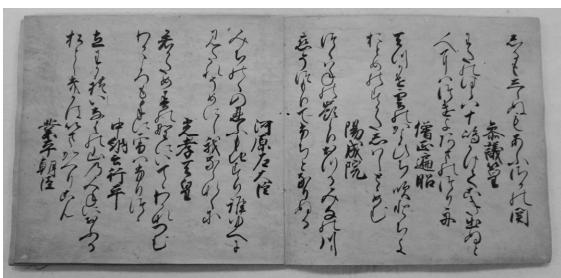 しるもしらぬもあふさかの関
参議篁
わたのはら八十嶋かけてこき出ぬと
人にはつけよあまのつり舟
僧正遍昭
天つ風雲のかよひち吹とちよ
をとめのすかたしはしとゝめむ
陽成院
つくはねの嶺よりおつるみなの川
恋そつもりて淵となりぬる
河原左大臣
みちのくの忍ふもちすり誰ゆへに
みたれそめにし我ならなくに
光孝天皇
君かため春の野にいてゝわかなつむ
わか衣手に雪はふりつゝ
中納言行平
立わかれいなはの山のみねにおふる
松としきかは今かへりこん
業平朝臣